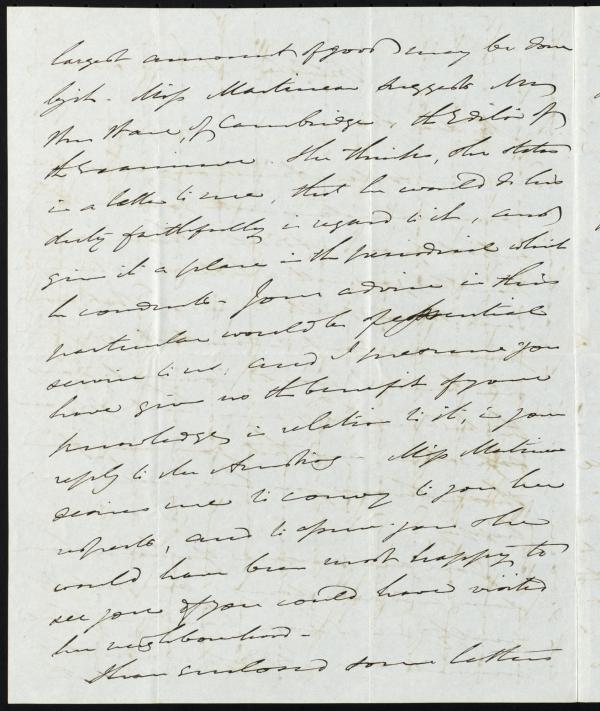 largest amount of good may be done
by it - Miss Martineau suggests Mr
Ware, of Cambridge, the Editor of
the Examiner. She thinks, she states
in a letter to me, that he would do his
duty faithfully in regard to it, and
give it a place in the periodical which
he conducts - Your advice in this
particular would be of essential
service to us, and I presume you
have given us the benefit of your
knowledge in relation to it, in your
reply to - Miss Martineau
desires me to convey to you her
respects, and to assure you she
would have been most happy to
see you if you could have visited
her neighbourhood -
I have enclosed some letters